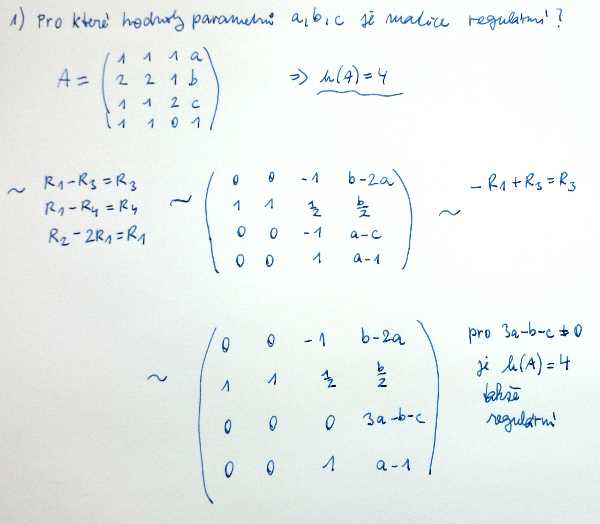 1) Pro které hodnoty parametrů a, b, c je matice regulární?
A = ( 1 1 1 a ⇒ h(A) = 4
2 2 1 b
1 1 2 c
1 1 0 1 )
~ R1 - R3 = R3
R1 - R4 = R4
R2 - 2R1 = R1
~ ( 0 0 -1 b-2a
1 1 1/2 b/2
0 0 -1 a-c
0 0 1 a-1 )
~ -R1 + R3 = R3
~ ( 0 0 -1 b-2a
1 1 1/2 b/2
0 0 0 3a-b-c
0 0 1 a-1 )
pro 3a-b-c ≠ 0
je h(A) = 4
takže
regulární